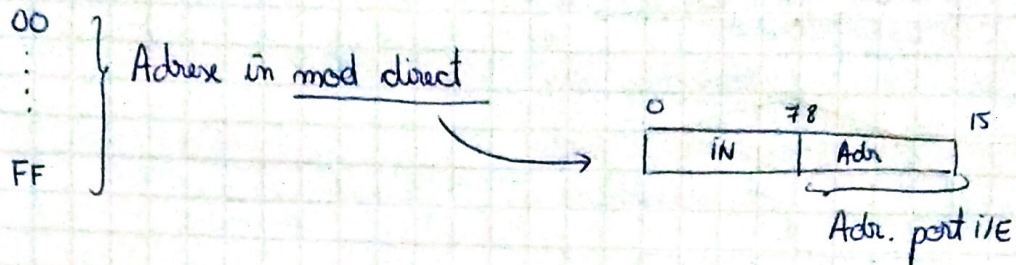 00
Adrese in mod direct
0 7 8 15
FF
iN Adr
Adr. port i/E